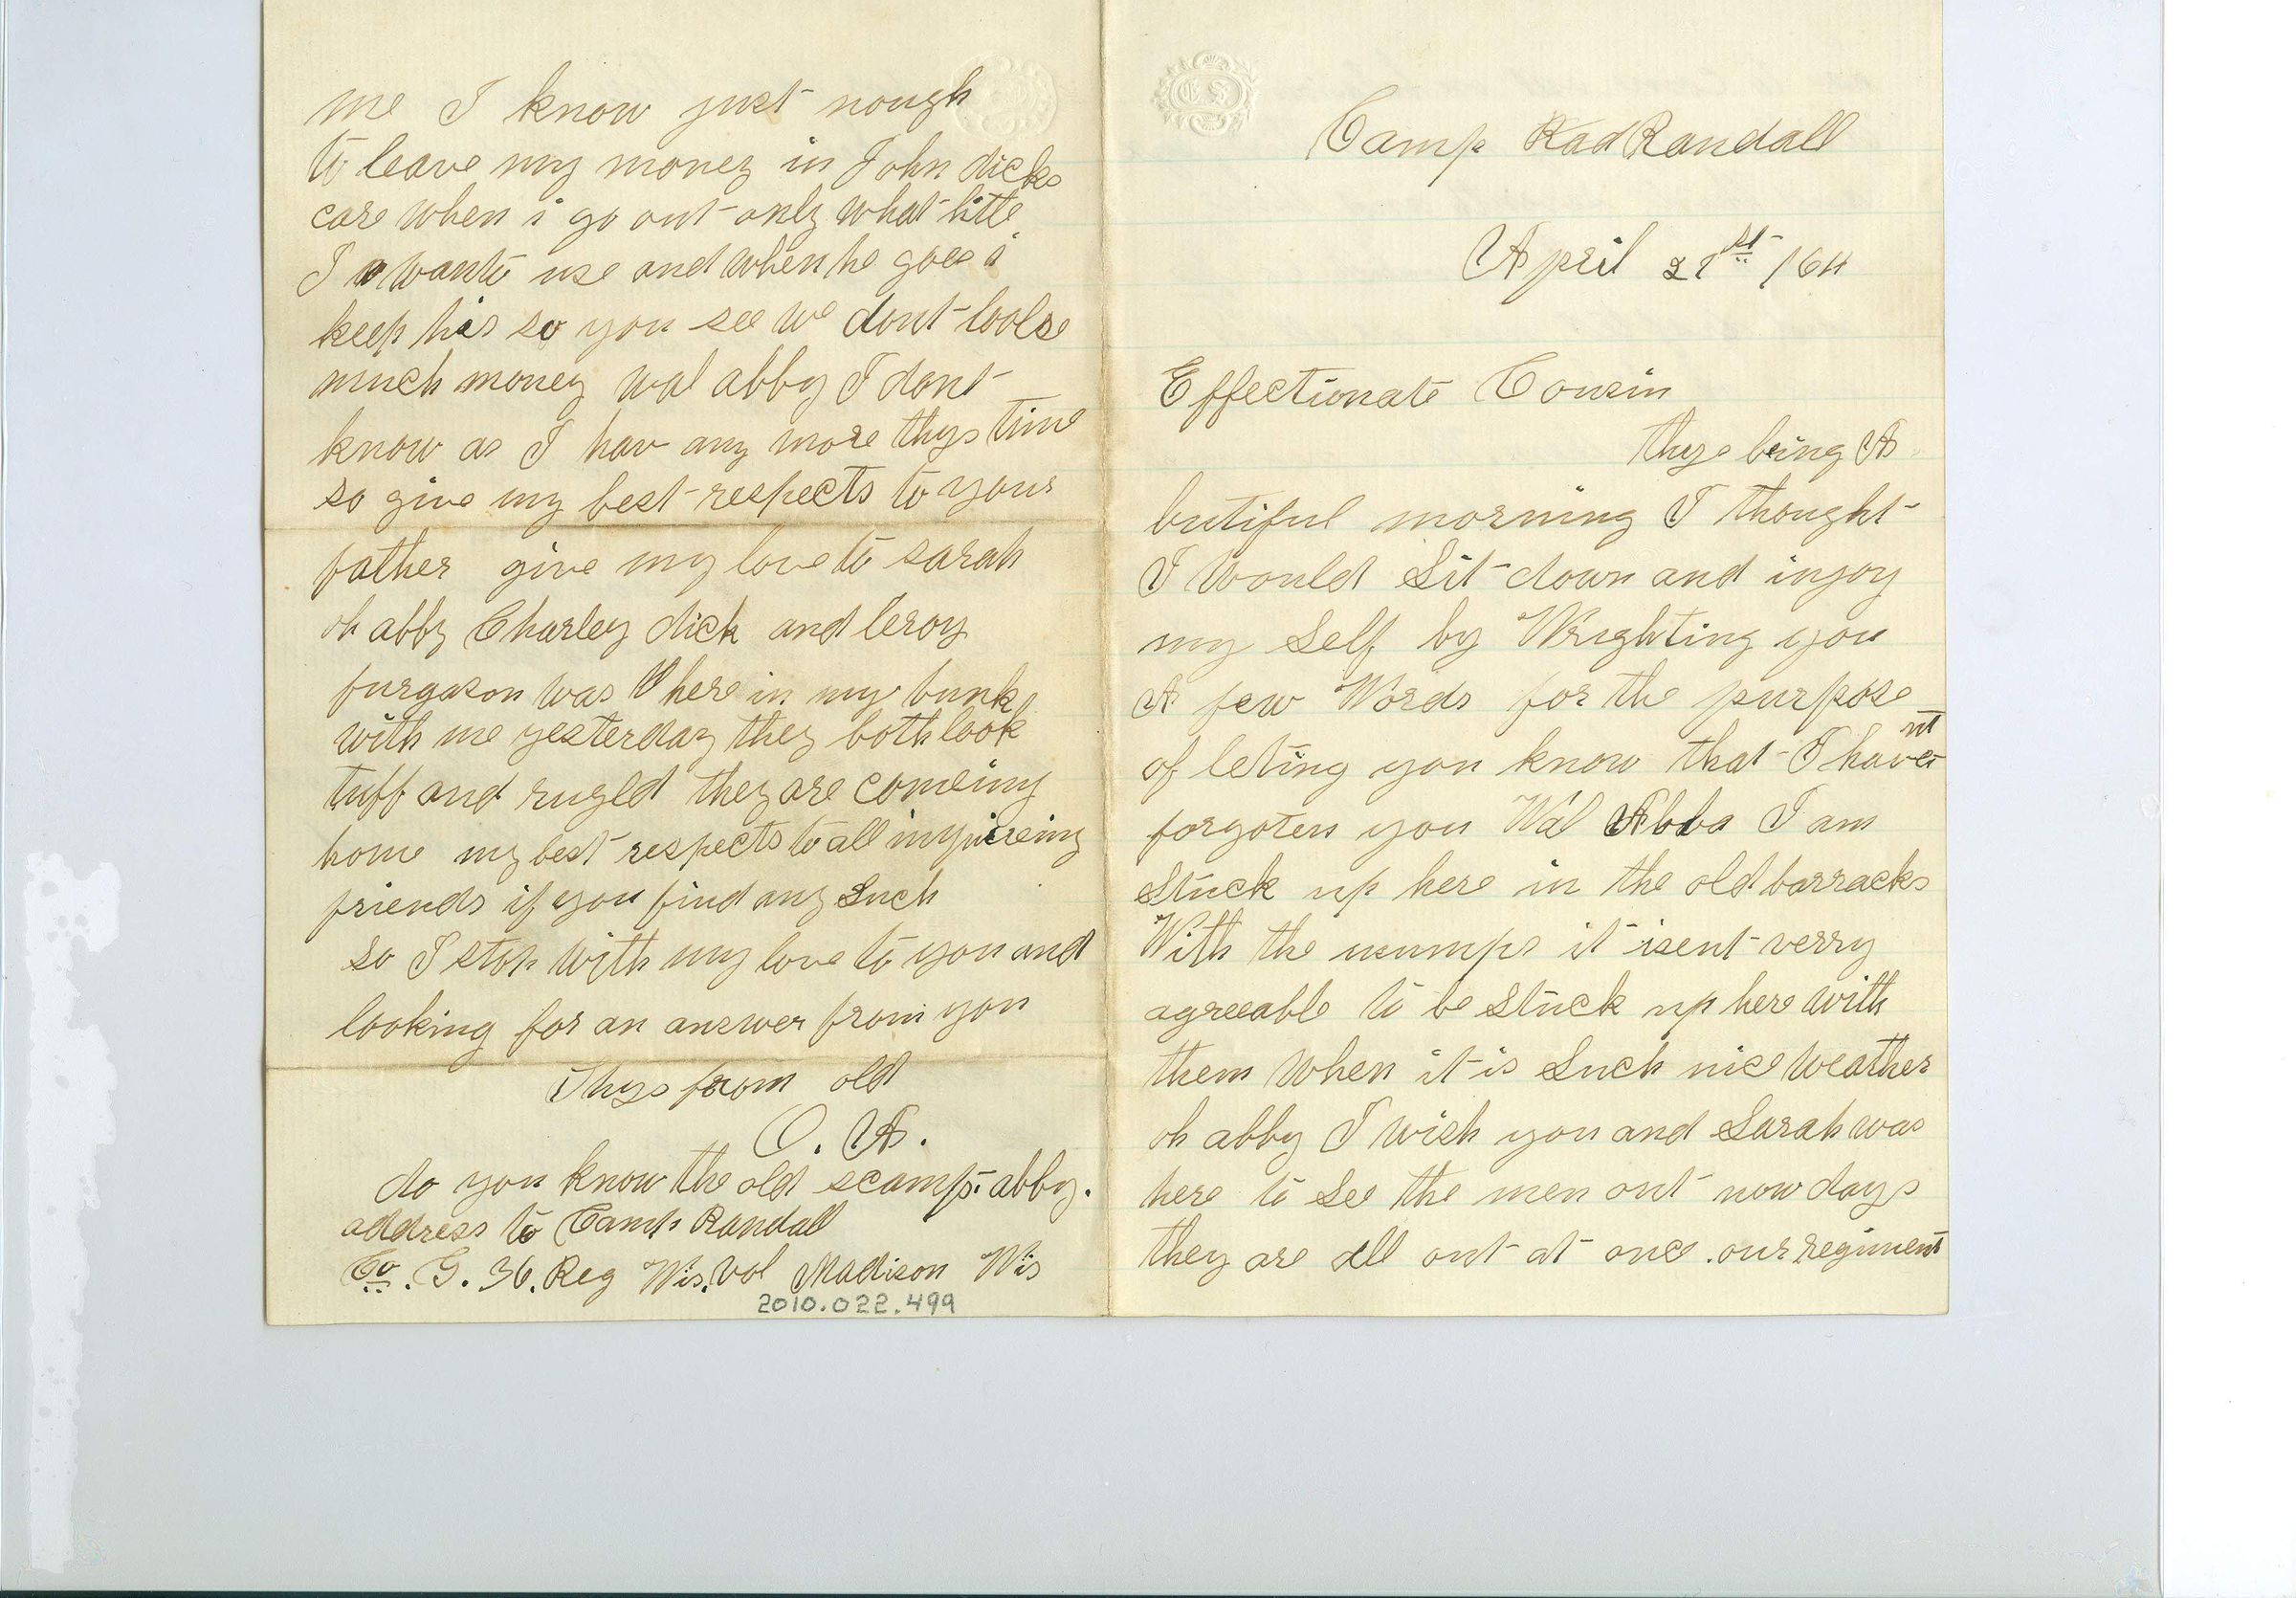 Camp Rad Randall
April 21st /64
Effectionate Cousin
thys being A
butiful morning I thought
I would Sit down and injoy
my Self by Wrighting you
A few Words for the purpose
of leting you know that I havent
forgoten you Wal Abba I am
Stuck up here in the old barracks
With the mumps it isent verry
agreeable to be Stuck up here with
them when it is Such nice weather
oh abby I wish you and Sarah was
here to See the men out now days
they are all out at once . our regiment
me I know just nough
to leave my money in John dicks
care when i go out only what little
I want to use and when he goes i
keep his so you see we dont loose
much money wal abby I dont
know as I hav any more thys time
so give my best respects to your
father give my love to sarah
oh abby Charley dick and leroy
furgason was here in my bunk
with me yesterday they both look
tuff and rugled they are comeing
home my best respects to all inquireing
friends if you find any Such
so I stop with my love to you and
looking for an answer from you
Thys from old
O. A.
do you know the old scamp. abby.
address to Camp Randall
Co. G. 36. Reg Wis. Vol Madison Wis
2010.022.499